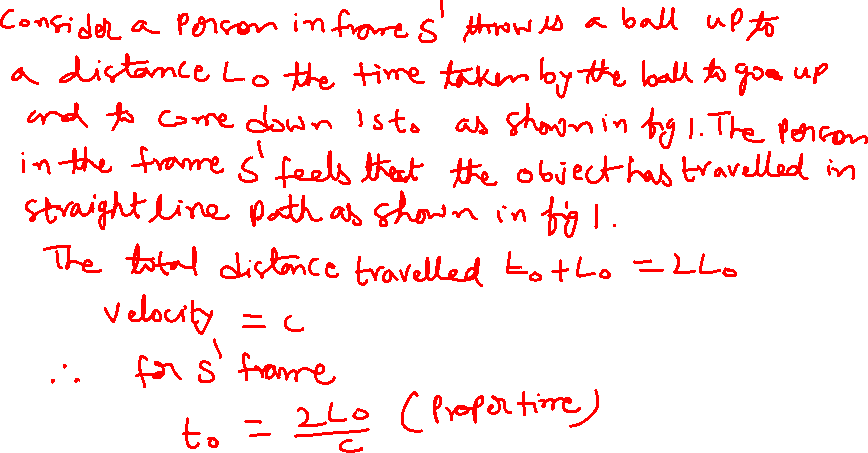 Consider a person in frame S' throws a ball up to
a distance L₀ the time taken by the ball to go up
and to come down is t₀ as shown in fig 1. The person
in the frame S' feels that the object has travelled in
straight line path as shown in fig 1.
The total distance travelled L₀ + L₀ = 2L₀
velocity = c
∴ for S' frame
t₀ = 2L₀/c (Proper time)